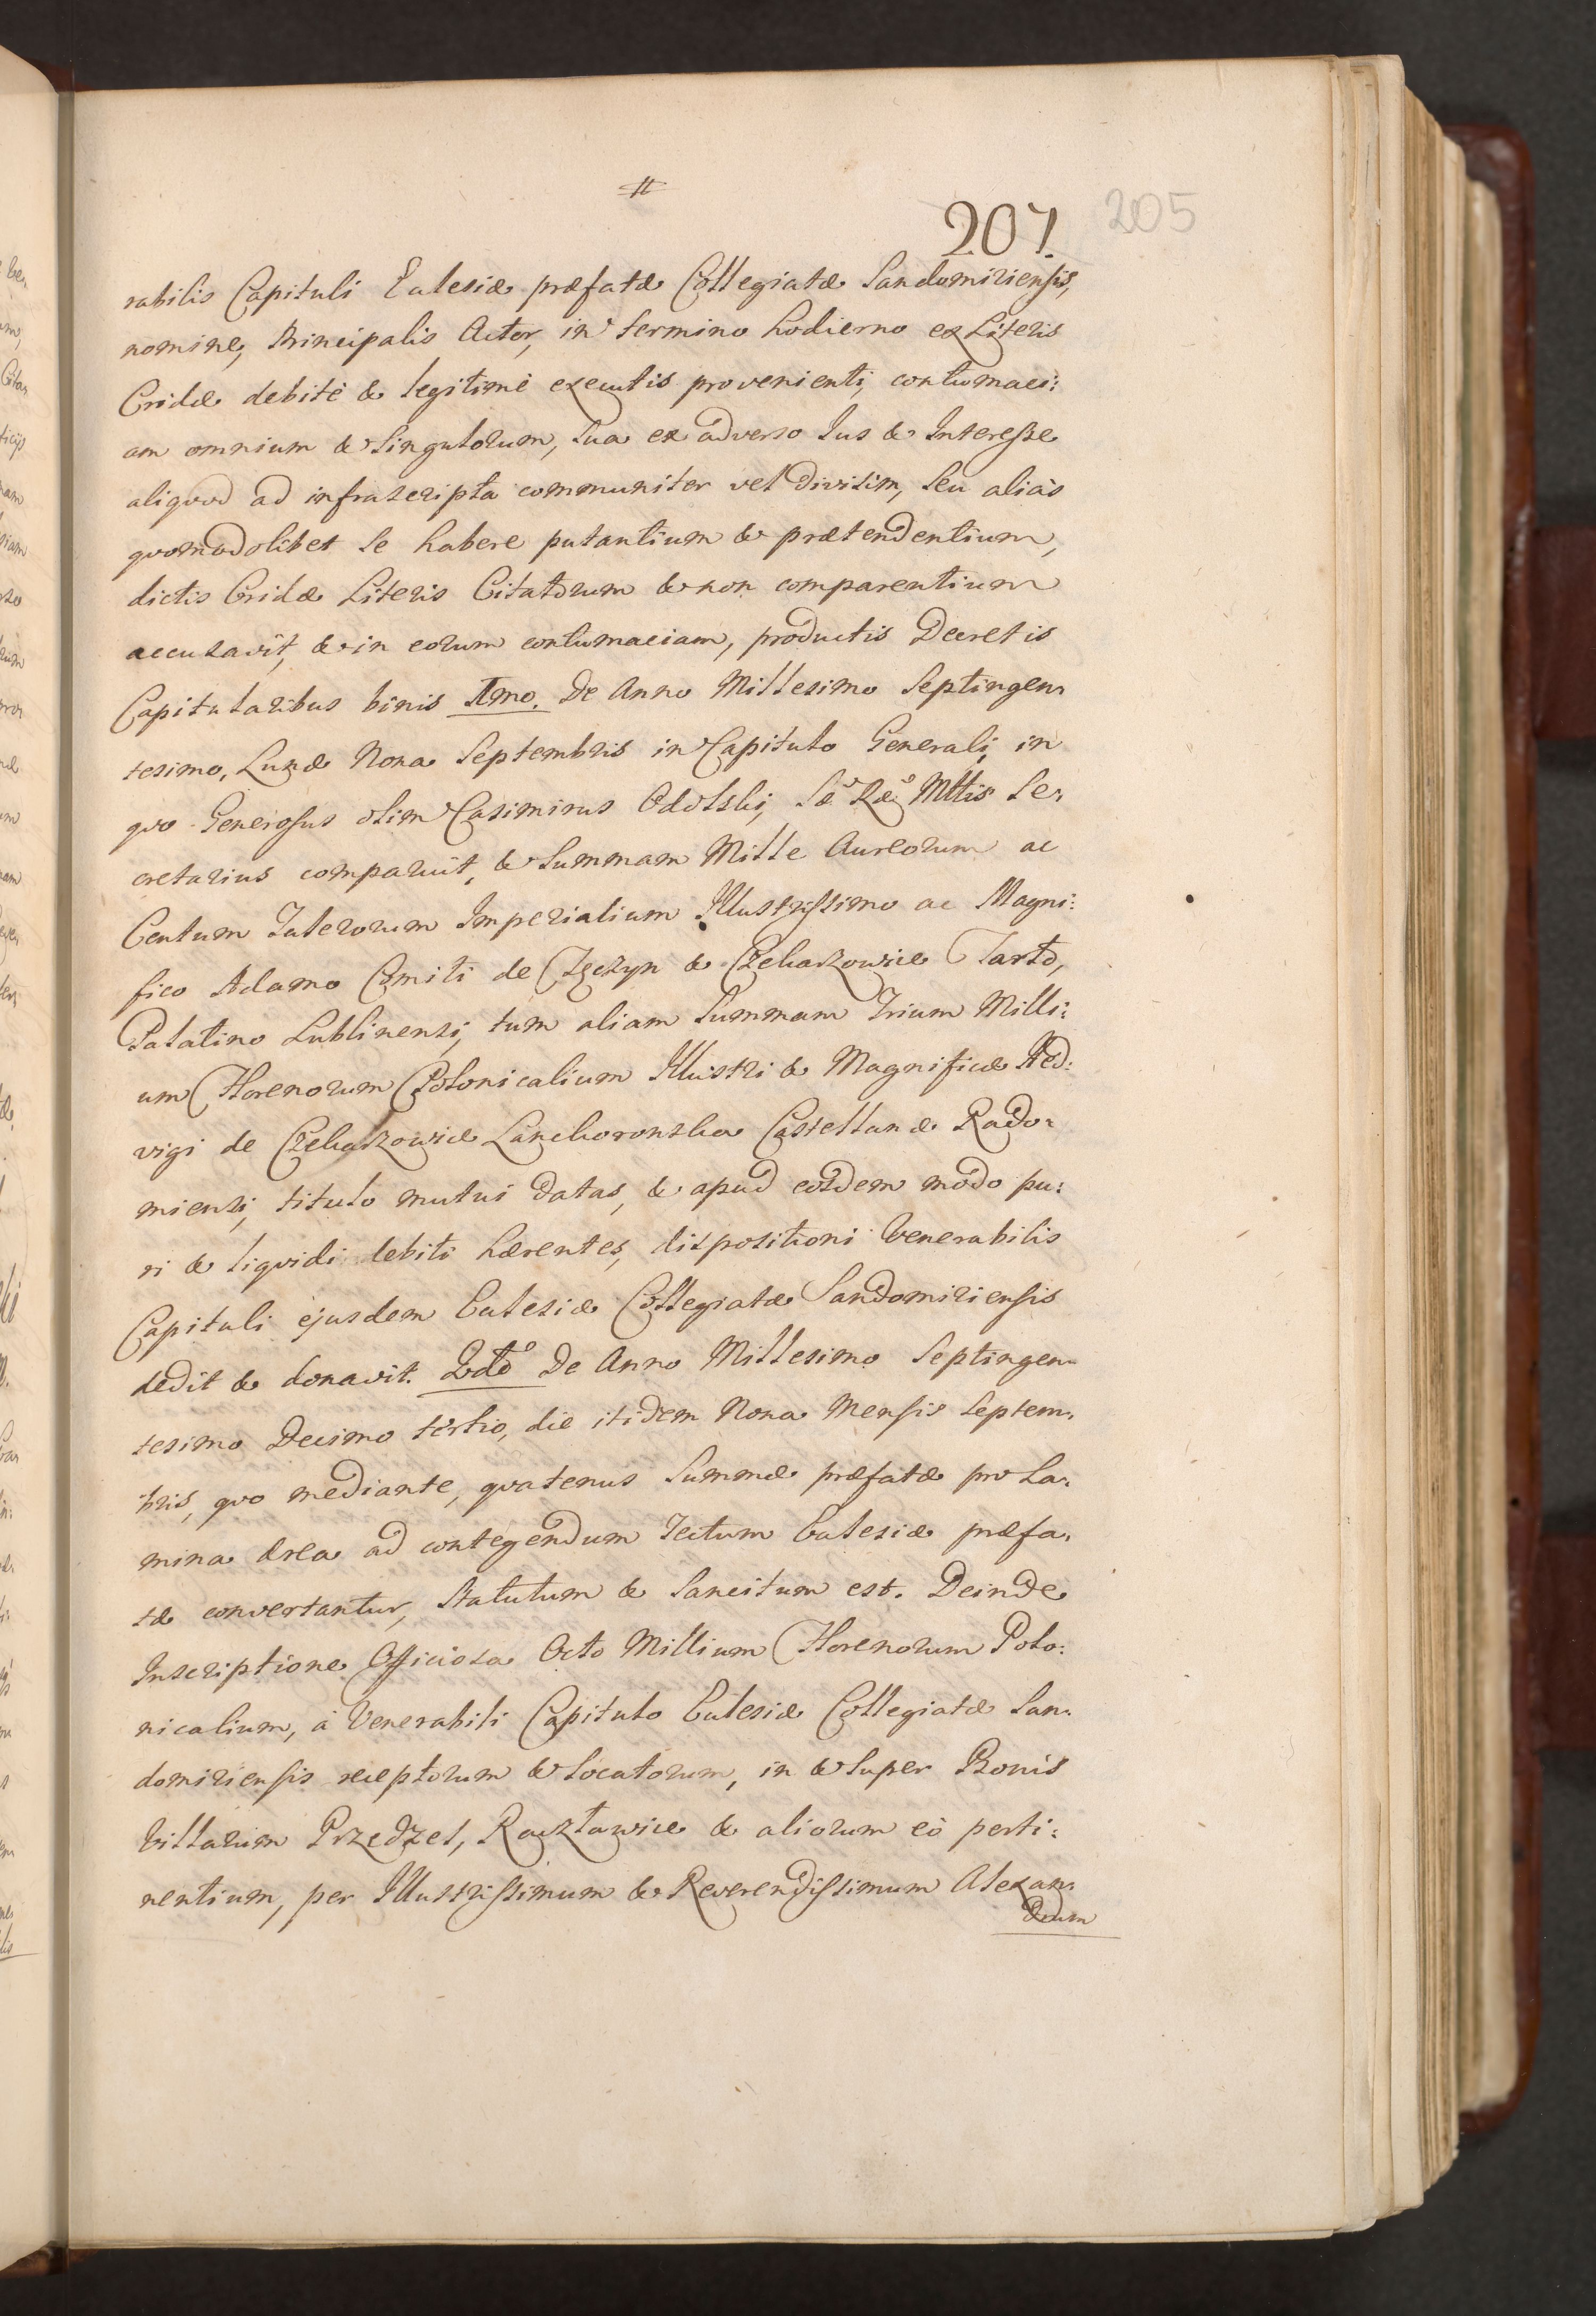 #
207. 205
rabilis Capituli Ecclesiæ præfatæ Collegiatæ Sandomiriensis,
nomine, Principalis Actor, in termino hodierno ex Literis
Cridæ debitè & legitimè executis provenienti, contumaci:
am omnium & Singulorum, sua ex adverso Jus & Interesse
aliquod ad infrascripta communiter vel divisim, seu alias
quomodolibet se habere putantium & prætendentium,
dictis Cridæ Literis Citatorum & non comparentium
accusavit, & in eorum contumaciam, productis Decretis
Capitularibus binis 1mo. De Anno Millesimo Septingen:
tesimo, Lunæ Nona Septembris in Capitulo Generali, in
quo Generosus olim Casimirus Odolski, Sæ Ræ Mttis Se:
cretarius comparuit, & Summam Mille Aureorum ac
Centum Talerorum Imperialium Illustrissimo ac Magni:
fico Adamo Comiti de Tęczyn & Czekarzowice Tarło,
Palatino Lublinensi, tum aliam Summam Trium Milli:
um Florenorum Polonicalium Illustri & Magnificæ Hed:
vigi de Czekarzowice Lanckoronska Castellanæ Rado:
miensi, titulo mutui datas, & apud eosdem modo pu:
ri & liquidi debiti hærentes, dispositioni Venerabilis
Capituli ejusdem Ecclesiæ Collegiatæ Sandomiriensis
dedit & donavit. 2do De Anno Millesimo Septingen:
tesimo Decimo tertio, die itidem Nona Mensis Septem:
bris, quo mediante, quatenus Summæ præfatæ pro La:
mina ærea ad contegendum Tectum Ecclesiæ præfa:
tæ convertantur, Statutum & Sancitum est. Deinde
Inscriptione Officiosa Octo Millium Florenorum Polo:
nicalium, à Venerabili Capitulo Ecclesiæ Collegiatæ San:
domiriensis receptorum & locatorum, in & super Bonis
Villarum Przędzel, Racławice & aliorum eò perti:
nentium, per Illustrissimum & Reverendissimum Alexan:
drum